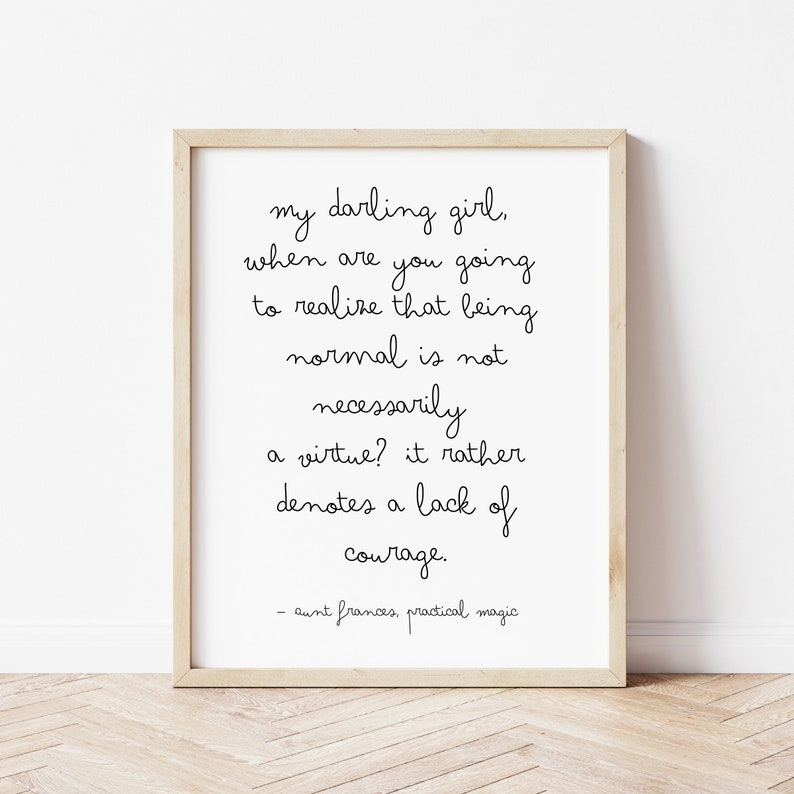 my darling girl,
when are you going
to realize that being
normal is not
necessarily
a virtue? it rather
denotes a lack of
courage.
- aunt frances, practical magic